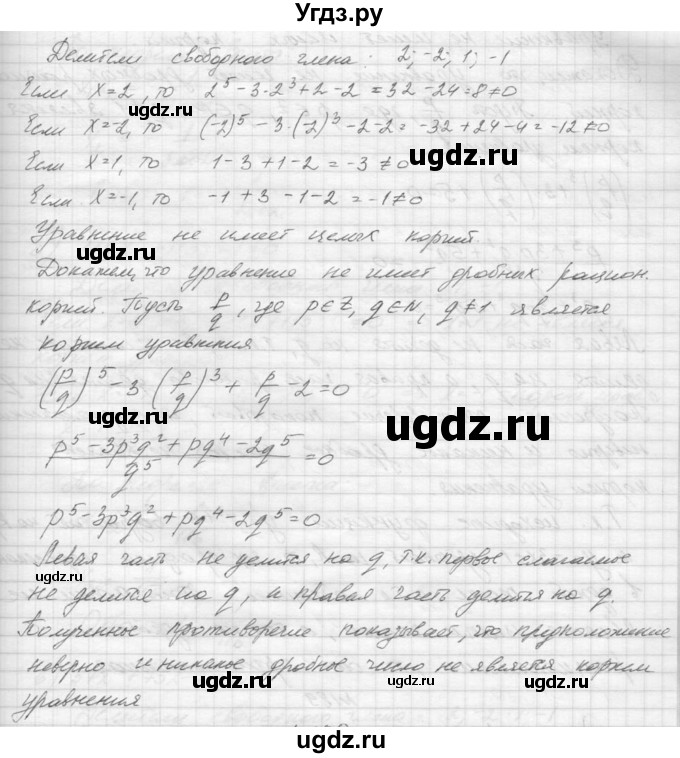 Угдз.ру
Делители свободного члена: 2; -2; 1; -1
Если x=2, то 2^5-3·2^3+2-2=32-24=8≠0
ugdz.ru
Если x=-2, то (-2)^5-3·(-2)^3-2-2=-32+24-4=-12≠0
ugdz.ru
Если x=1, то 1-3+1-2=-3≠0
ugdz.ru
Если x=-1, то -1+3-1-2=-1≠0
Уравнение не имеет целых корней.
ugdz.ru
Докажем, что уравнение не имеет дробных рацион.
корней. Пусть p/q, где p∈Z, q∈N, q≠1 является
ugdz.ru
корнем уравнения
(p/q)^5-3(p/q)^3+p/q-2=0
ugdz.ru
ugdz.ru
(p^5-3p^3q^2+pq^4-2q^5)/q^5=0
p^5-3p^3q^2+pq^4-2q^5=0
ugdz.ru
Левая часть не делится на q, т.к. первое слагаемое
ugdz.ru
не делится на q, а правая часть делится на q.
ugdz.ru
Полученное противоречие показывает, что предположение
неверно и никакое дробное число не является корнем
ugdz.ru
ugdz.ru
уравнения
ugdz.ru